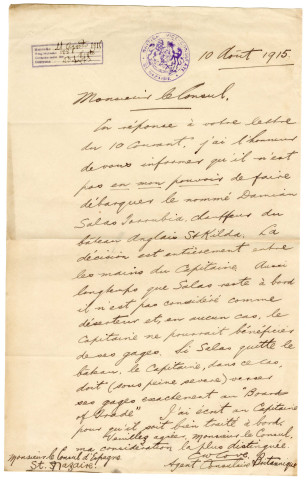 10 Août 1915.
Monsieur le Consul,
En réponse à votre lettre
du 10 Courant, j'ai l'honneur
de vous informer qu'il n'est
pas en mon pouvoir de faire
débarquer le nommé Damian
Salas , chauffeur du
bateau Anglais St Kilda. La
décision est entièrement entre
les mains du Capitaine. Aussi
longtemps que Salas reste à bord
il n'est pas considéré comme
déserteur et, en aucun cas, le
Capitaine ne pourrait bénéficier
de ses gages. Si Salas quitte le
bateau, le Capitaine, dans ce cas,
doit (sous peine sévère) verser
ses gages exactement au "Board
of Trade" J'ai écrit au Capitaine
pour qu'il soit bien traité à bord.
Veuillez agréer, Monsieur le Consul,
ma considération la plus distinguée.
Monsieur le Consul d'Espagne
St. Nazaire.
Agent Consulaire Britannique